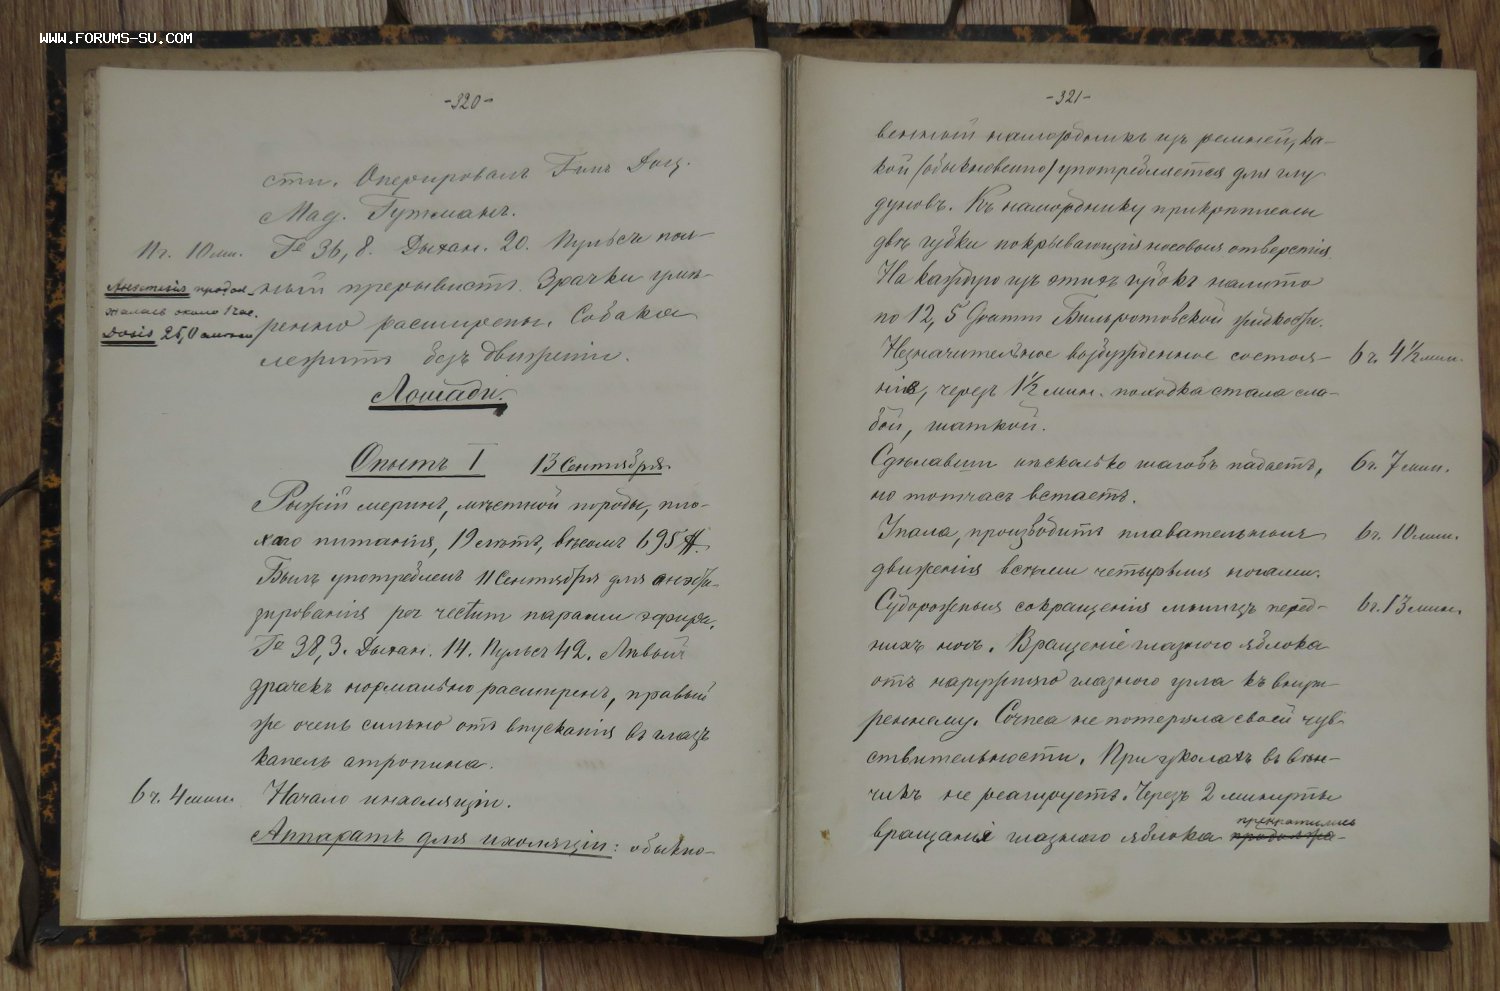 WWW.FORUMS-SU.COM
-320-
сти. Оперировалъ Доц.
Маг. Гутманъ.
11 ч. 10 мин. Т° 36,8. Дыхан. 20. Пульсъ пол-
Анестезія продол- ный прерывистъ. Зрачки умѣ-
жалась около 1 час.
Dosis 25,0 ренно расширены. Собака
лежитъ безъ движеніи.
Лошади.
Опытъ I 13 Сентября.
Рыжій меринъ, мѣстной породы, пло-
хаго питанія, 19 лѣтъ, вѣсомъ 695 ℔.
Былъ употребленъ 11 Сентября для анэсте-
зированія per rectum парами эфира.
Т° 38,3. Дыхан. 14. Пульсъ 42. Лѣвый
зрачекъ нормально расширенъ, правый
же очень сильно отъ впусканія въ глазъ
капель атропина.
6 ч. 4 мин. Начало инхоляціи.
Аппаратъ для ихоляціи: обыкно-
-321-
венный намордникъ изъ ремней, ка-
кой (обыкновенно) употребляется для гры-
зуновъ. Къ наморднику прикрѣплены
двѣ губки покрывающія носовыя отверстія.
На каждую изъ этихъ губокъ налито
по 12,5 Грамм Бильротовской жидкости.
Незначительное возбужденное состоя- 6 ч. 4½ мин.
ніе, черезъ 1½ мин. походка стала сла-
бой, шаткой.
Сдѣлавши нѣсколько шаговъ падаетъ, 6 ч. 7 мин.
но тотчасъ встаетъ.
Упала, производитъ плавательныя 6 ч. 10 мин.
движенія всѣми четырьмя ногами.
Судорожныя сокращенія мышцъ перед- 6 ч. 13 мин.
нихъ ногъ. Вращеніе глазного яблока
отъ наружняго глазного угла къ внут-
реннему. Cornea не потеряла своей чув-
ствительности. При уколахъ въ вѣн-
чикъ не реагируетъ. Черезъ 2 минуты
прекратились
вращанія глазного яблока продолжа-